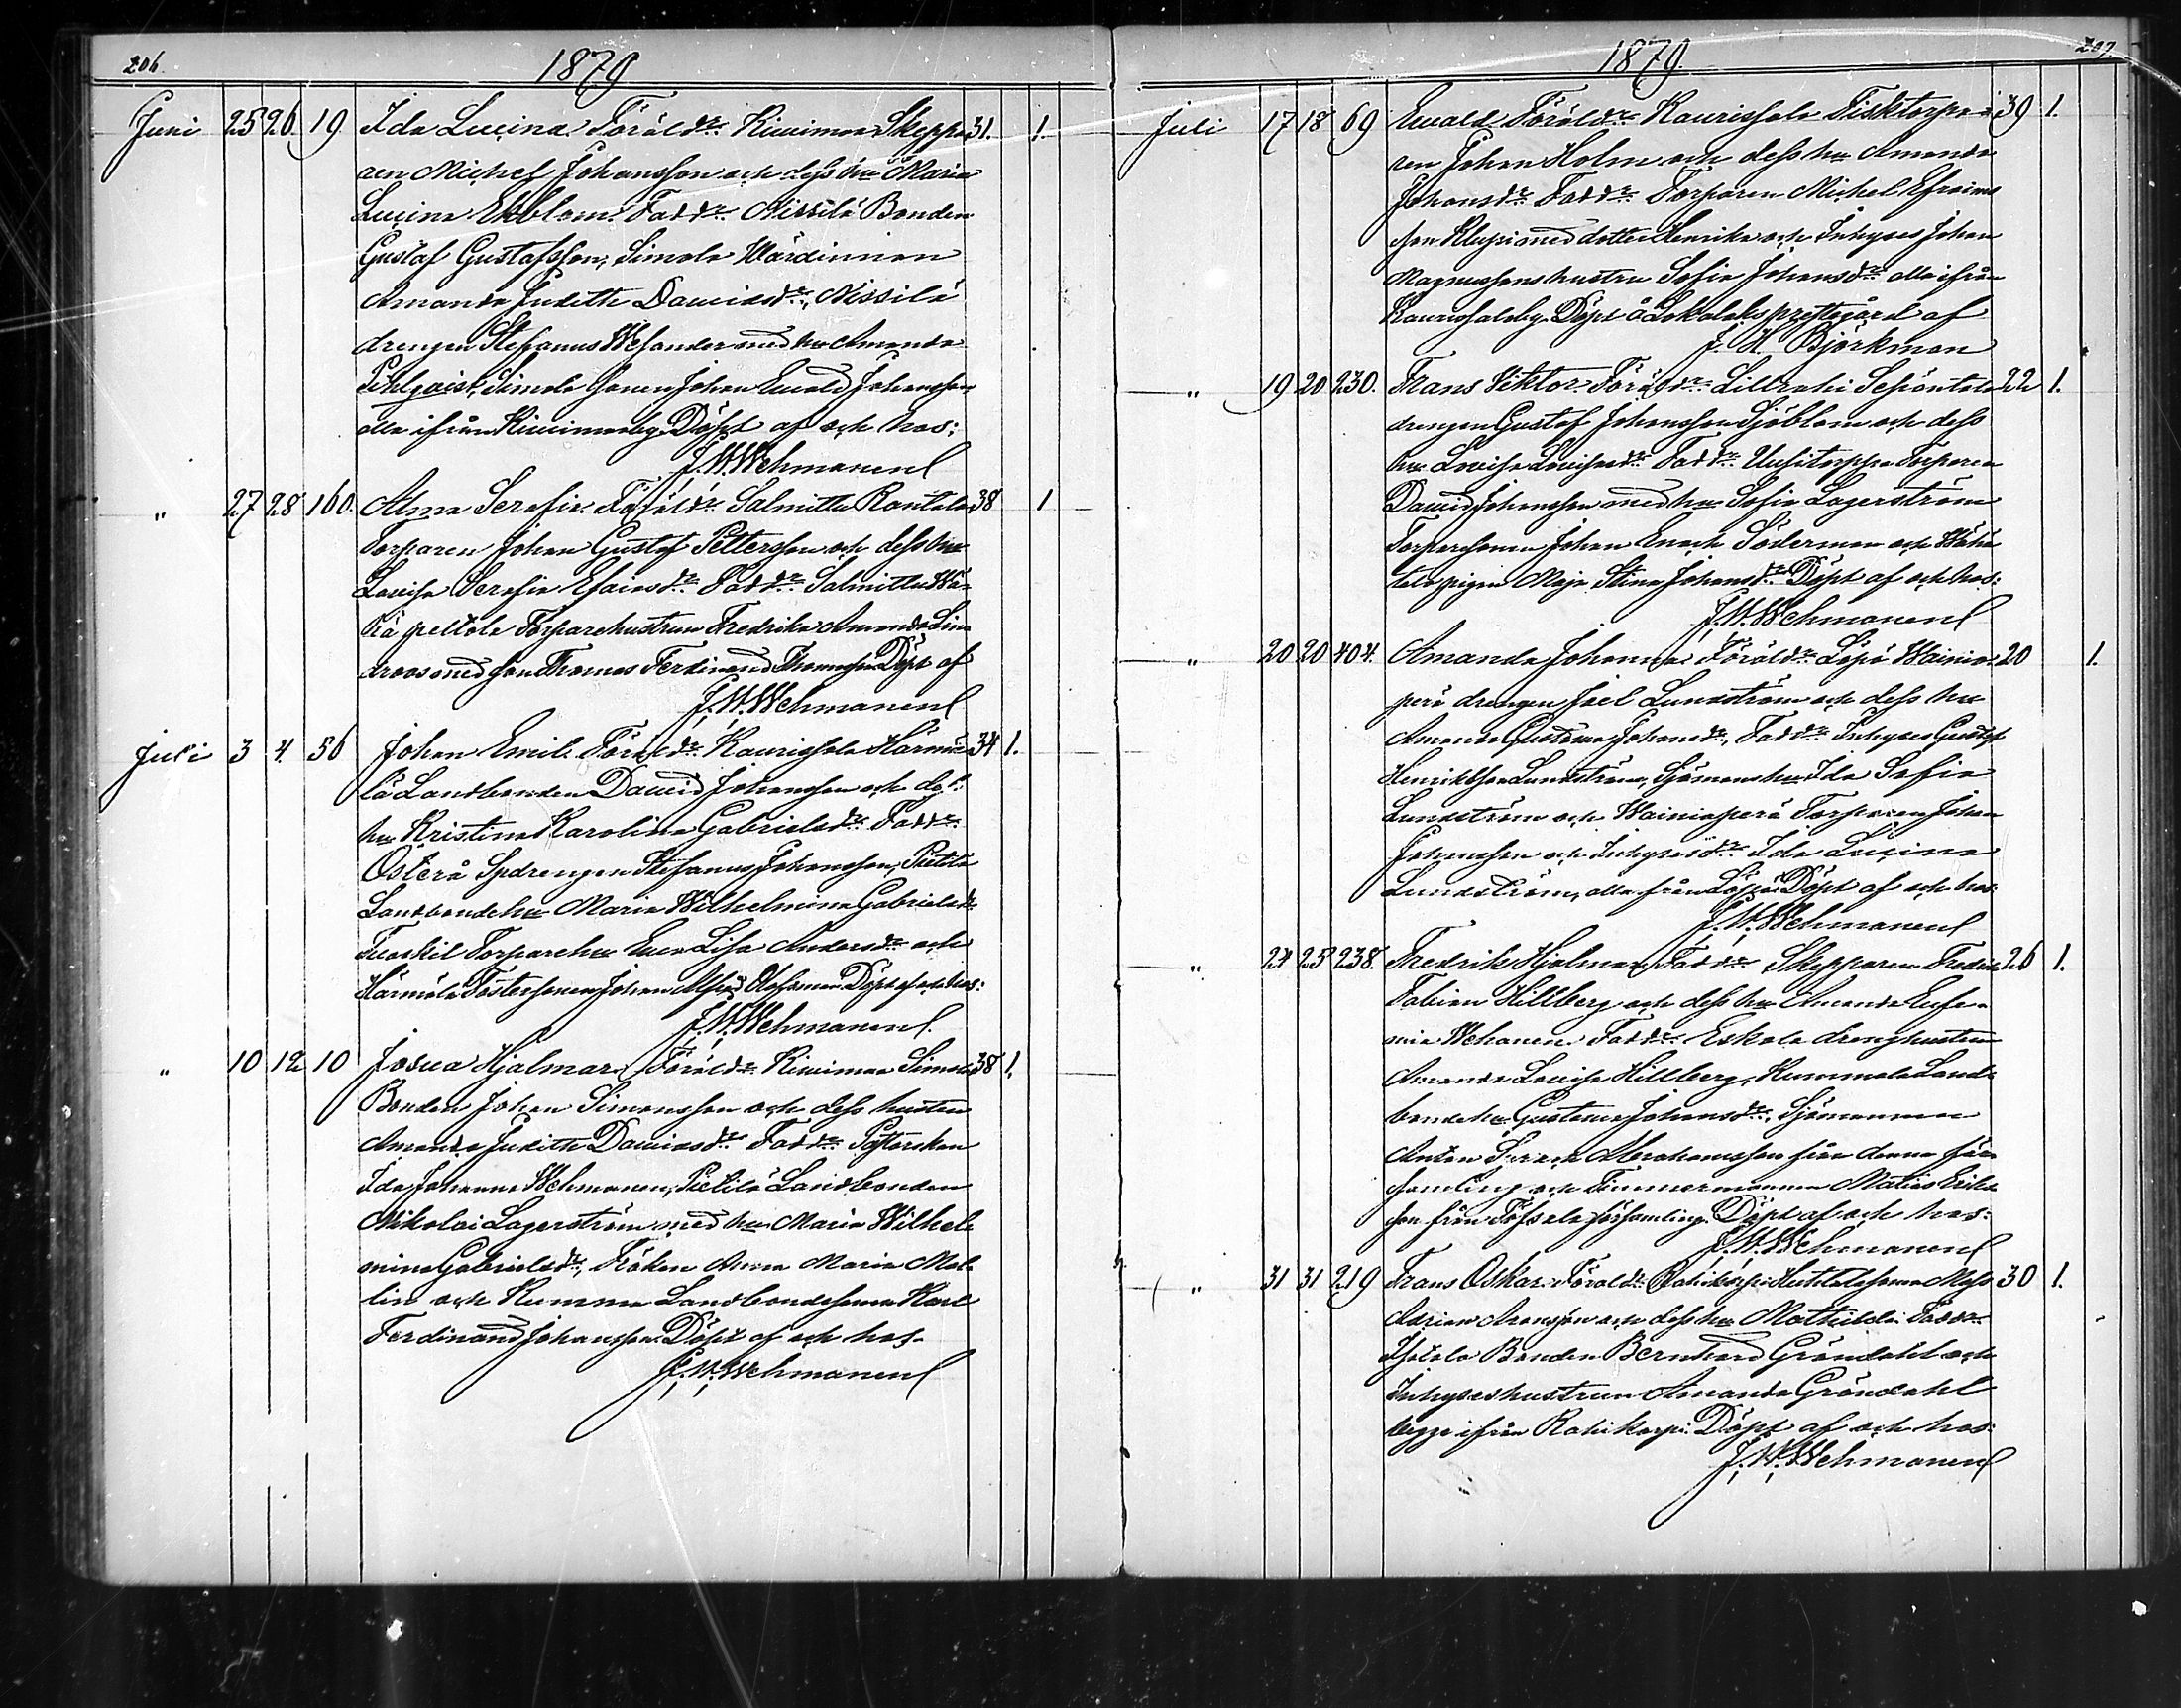 206.
1879
Juni 25 26. 19 Ida Lucina. Föräldr. Kiwimaa Skeppa- 31. 1.
ren Michel Johansson och dess hu Maria
Lucina Ekblom. Faddr. Nissilä Bonden
Gustaf Gustafsson, Simola Wärdinnan
Amanda Juditte Davidsdr, Nissilä
drengen Stefanus Wesander med hu Amanda
Simola sonen Johan Ewald Johansson
alla ifrån Kiwimaa by. Döpt af och hos:
J. W. Wehmanen
" 27 28 160. Alma Serafia. Föräldr. Salmittu Rantala 38 1
Torparen Johan Gustaf Pettersson och dess hu
Lovisa Serafia Esaiasdr. Faddr. Salmittu Wä-
hä peltola Torparehustrun Fredrika Amanda Lind-
roos med son Thomas Ferdinand Thomasson. Döpt af
J. W. Wehmanen
Juli 3 4. 56 Johan Emil. Föräldr. Kaurissalo Härmä- 34 1.
lä Landbonden David Johansson och dess
hu Kristina Karolina Gabrielsdr. Faddr.
Österå Spdrengen Stefanus Johansson, Pietilä
Landbondehu Maria Wilhelmina Gabrielsdr.
Torparehu Eva Lisa Andersdr. och
Härmälä Fostersonen Johan Alfred Döpt af och hos:
J. W. Wehmanen.
" 10 12 10 Josua Hjalmar. Föräldr. Kiwimaa Simola 38 1.
Bonden Johan Simonsson och dess hustru
Amanda Juditte Davidsdr. Faddr. Pastorskan
Ida Johanna Wehmanen, Pietilä Landbonden
Nikolai Lagerström med hu Maria Wilhel-
mina Gabrielsdr, Fröken Anna Maria Mal-
lin och Kumma Landbondesonen Karl
Ferdinand Johansson. Döpt af och hos.
J. W. Wehmanen
207.
1879
Juli 17 18 69 Ewald. Föräldr. Kaurissalo Fisktorpa- 39 1.
ren Johan Holm och dess hu Amanda
Johansdr. Faddr. Torparen Michel Efraims
son med dotter Henrika och Inhyses Johan
Magnussons hustru Sofia Johansdr. alla ifrån
Kaurissaloby. Döpt å Lokalaks prestgård af
J. H. Björkman
" 19 20 230. Frans Viktor. Föräldr. Lillrahi Sepäntalo 22 1.
drengen Gustaf Johansson Sjöblom och dess
hu Lovisa Faddr. Uusitorppa Torparen
David Johansson med hu Sofia Lagerström
Torparesonen Johan Enoch Söderman och Wähä
talo pigan Maja Stina Johansdr. Döpt af och hos:
J. W. Wehmanen
" 20 20 404. Amanda Johanna. Föräldr. Löpö Wainion- 20 1.
perä drengen Joel Lundström och dess hu
Amanda Gustava Johansdr. Faddr. Inhyses Gustaf
Henriksson Lundström, Sjömans hu Ida Sofia
Lundström och Wainionperä Torparen Johan
Johansson och Inhysesdr. Ida Lucina
Lundström, alla från Löpö. Döpt af och hos:
J. W. Wehmanen
" 24 25 238. Fredrik Hjalmar. Faddr. Skepparen Fredrik 26 1.
Fabian Hillberg och dess hu Amanda Eufe-
mia Wehanen. Faddr. Eskola drenghustrun
Amanda Lovisa Hillberg, Kummala Land-
bondehu. Gustava Johansdr. Sjömannen
Anton Abrahamsson från denna för-
samling och Timmermannen Matias Eriks-
son från Töfsala församling. Döpt af och hos:
J. W. Wehmanen
" 31 31 219 Frans Oskar. Föräldr. Rahikorpi 30 1.
Adrian Aronsson och dess hu Mathilda. Faddr.
Isotalo Bonden Bernhard Gröndahl och
Inhyseshustrun Amanda Gröndahl
begge ifrån Rahikorpi. Döpt af och hos:
J. W. Wehmanen